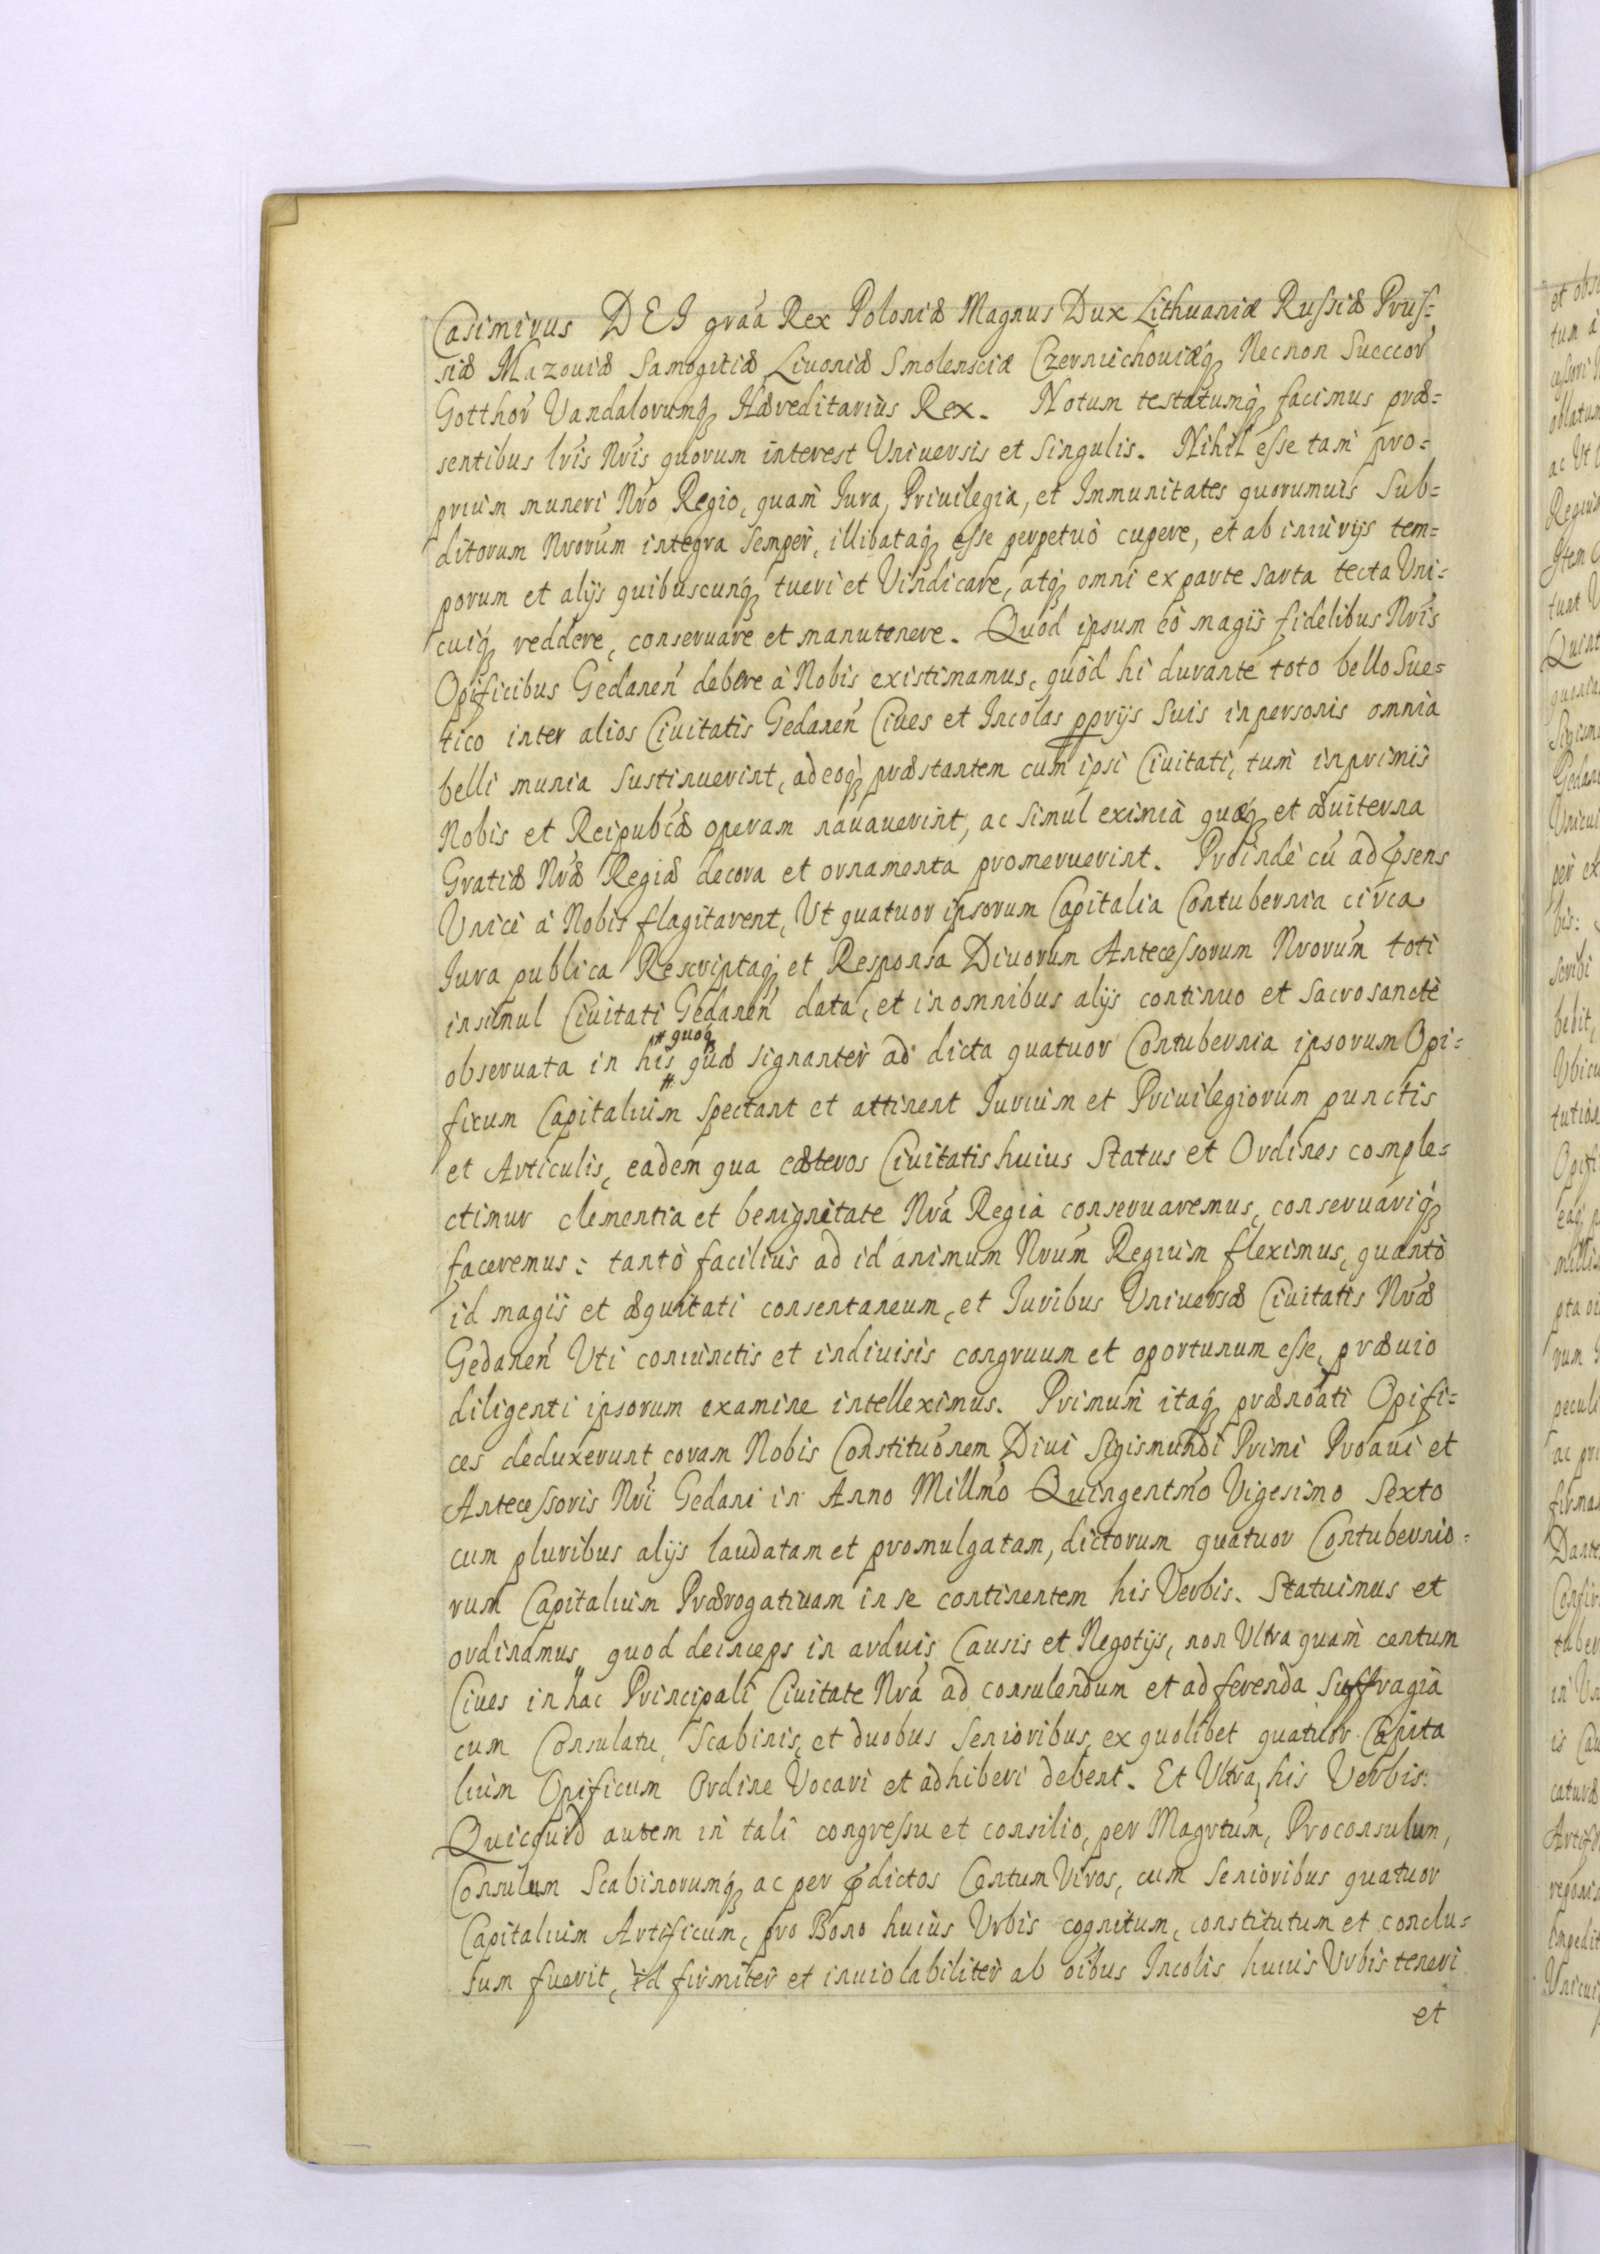 Casimirus DEI graã Rex Poloniæ Magnus Dux Lithuaniæ Russiæ Prus=
siæ Mazouiæ Samogitiæ Liuoniæ Smolensciæ Czerniichouiæq́ꝫ Necnon Sueccor̃
Gotthor̃ Vandalorumq́ꝫ Hæreditarius Rex. Notum testatumq́ꝫ facimus præ=
sentibus lr̃is Nr̃is quorum interest Uniuersis et Singulis. Nihil esse tam pro=
prium muneri Nr̃o Regio, quam Iura, Priuilegia, et Immunitates quorumuis Sub=
ditorum Nrorum̃ integra semper, illibataq́ꝫ esse perpetuò cupere, et ab iniurijs tem=
porum et alijs quibuscunq́ꝫ tueri et Vindicare, atq́ꝫ omni ex parte sarta tecta Vni=
cuiq́ꝫ reddere, conseruare et manutenere. Quod ipsum eò magis fidelibus Nr̃is
Opificibus Gedaneñ debere à Nobis existimamus, quòd hi durante toto bello Sue=
tico inter alios Ciuitatis Gedaneñ Ciues et Incolas ꝓprijs suis in personis omnia
belli munia sustinuerint, adeoq́ꝫ præstantem cum ipsi Ciuitati, tum inprimis
Nobis et Reipubcæ̃ operam nauauerint, ac simul eximia quæq́ꝫ et æuiterna
Gratiæ Nr̃æ Regiæ decora et ornamenta promeruerint. Proindè cũ ad p̃sens
Unicè à Nobis flagitarent, Ut quatuor ipsorum Capitalia Contubernia circa
Iura publica Rescriptaq́ꝫ et Responsa Diuorum Antecessorum Nrorum̃ toti
insimul Ciuitati Gedaneñ data, et in omnibus alijs continuo et Sacrosanctè
# quoq́ꝫ
obseruata in his # quæ signanter ad dicta quatuor Contubernia ipsorum Opi=
ficum Capitalium spectant et attinent Iurium et Priuilegiorum punctis
et Articulis, eadem qua cæteros Ciuitatis huius Status et Ordines comple=
ctimur clementia et benignitate Nrã Regià conseruaremus, conseruáriq́ꝫ
faceremus: tantò facilius ad id animum Nrum̃ Regium fleximus, quantò
id magis et æquitati consentaneum, et Iuribus Uniuersæ Ciuitatis Nr̃æ
Gedaneñ Uti coniunctis et indiuisis congruum et oportunum esse, præuio
diligenti ipsorum examine intelleximus. Primum itaq́ꝫ prænoãti Opifi=
ces deduxerunt coram Nobis Constituõnem Diui Sigismundi Primi Proaui et
Antecessoris Nr̃i Gedani in Anno Millmõ Quingentmõ Vigesimo Sexto
cum pluribus alijs laudatam et promulgatam, dictorum quatuor Contubernio=
rum Capitalium Prærogatiuam in se continentem his Verbis. Statuimus et
ordinamus quod deinceps in arduis Causis et Negotijs, non Ultra quàm centum
Ciues in hac Principali Ciuitate Nrã ad consulendum et ad ferenda Suffragia
cum Consulatu, Scabinis, et duobus Senioribus, ex quolibet quatuor Capita
lium Opificum Ordine Vocari et adhiberi debent. Et Ultra, his Verbis:
Quicquid autem in tali congressu et consilio, per Magrtum̃, Proconsulum,
Consulum Scabinorumq́ꝫ ac per p̃dictos Centum Viros, cum Senioribus quatuor
Capitalium Artificum, pro Bono huius Urbis cognitum, constitutum et conclu=
sum fuerit, id firmiter et inuiolabiliter ab oĩbus Incolis huius Urbis teneri
et